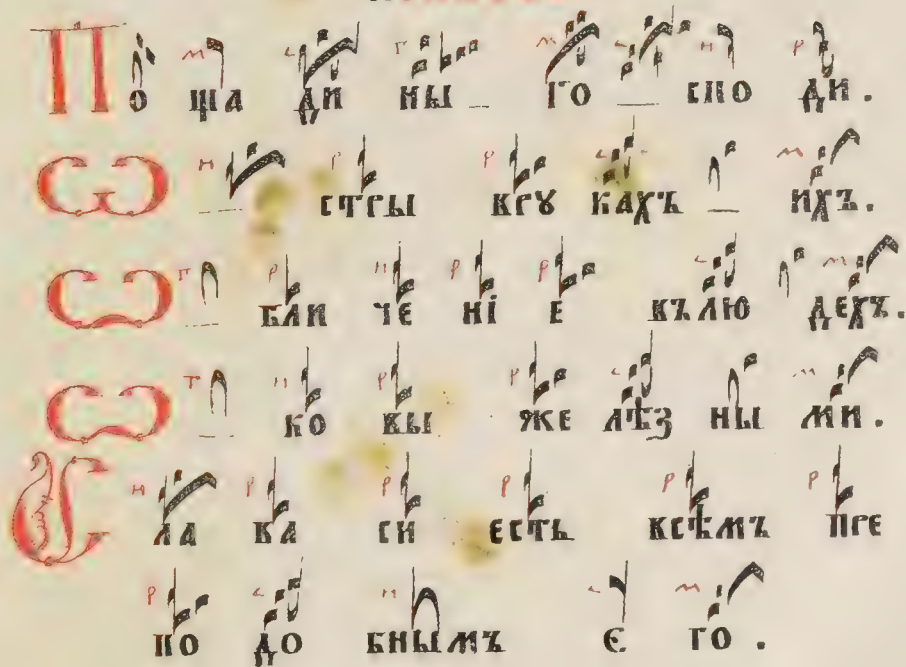 По ща ди ны _ го _ спо ди.
Ѡ _ стры врꙋ кахъ _ ихъ.
Ѡ _ бли че нї е въ лю дехъ.
Ѡ _ ко вы же лѣз ны ми.
Сла ва си есть всѣмъ пре
по до бнымъ є го.